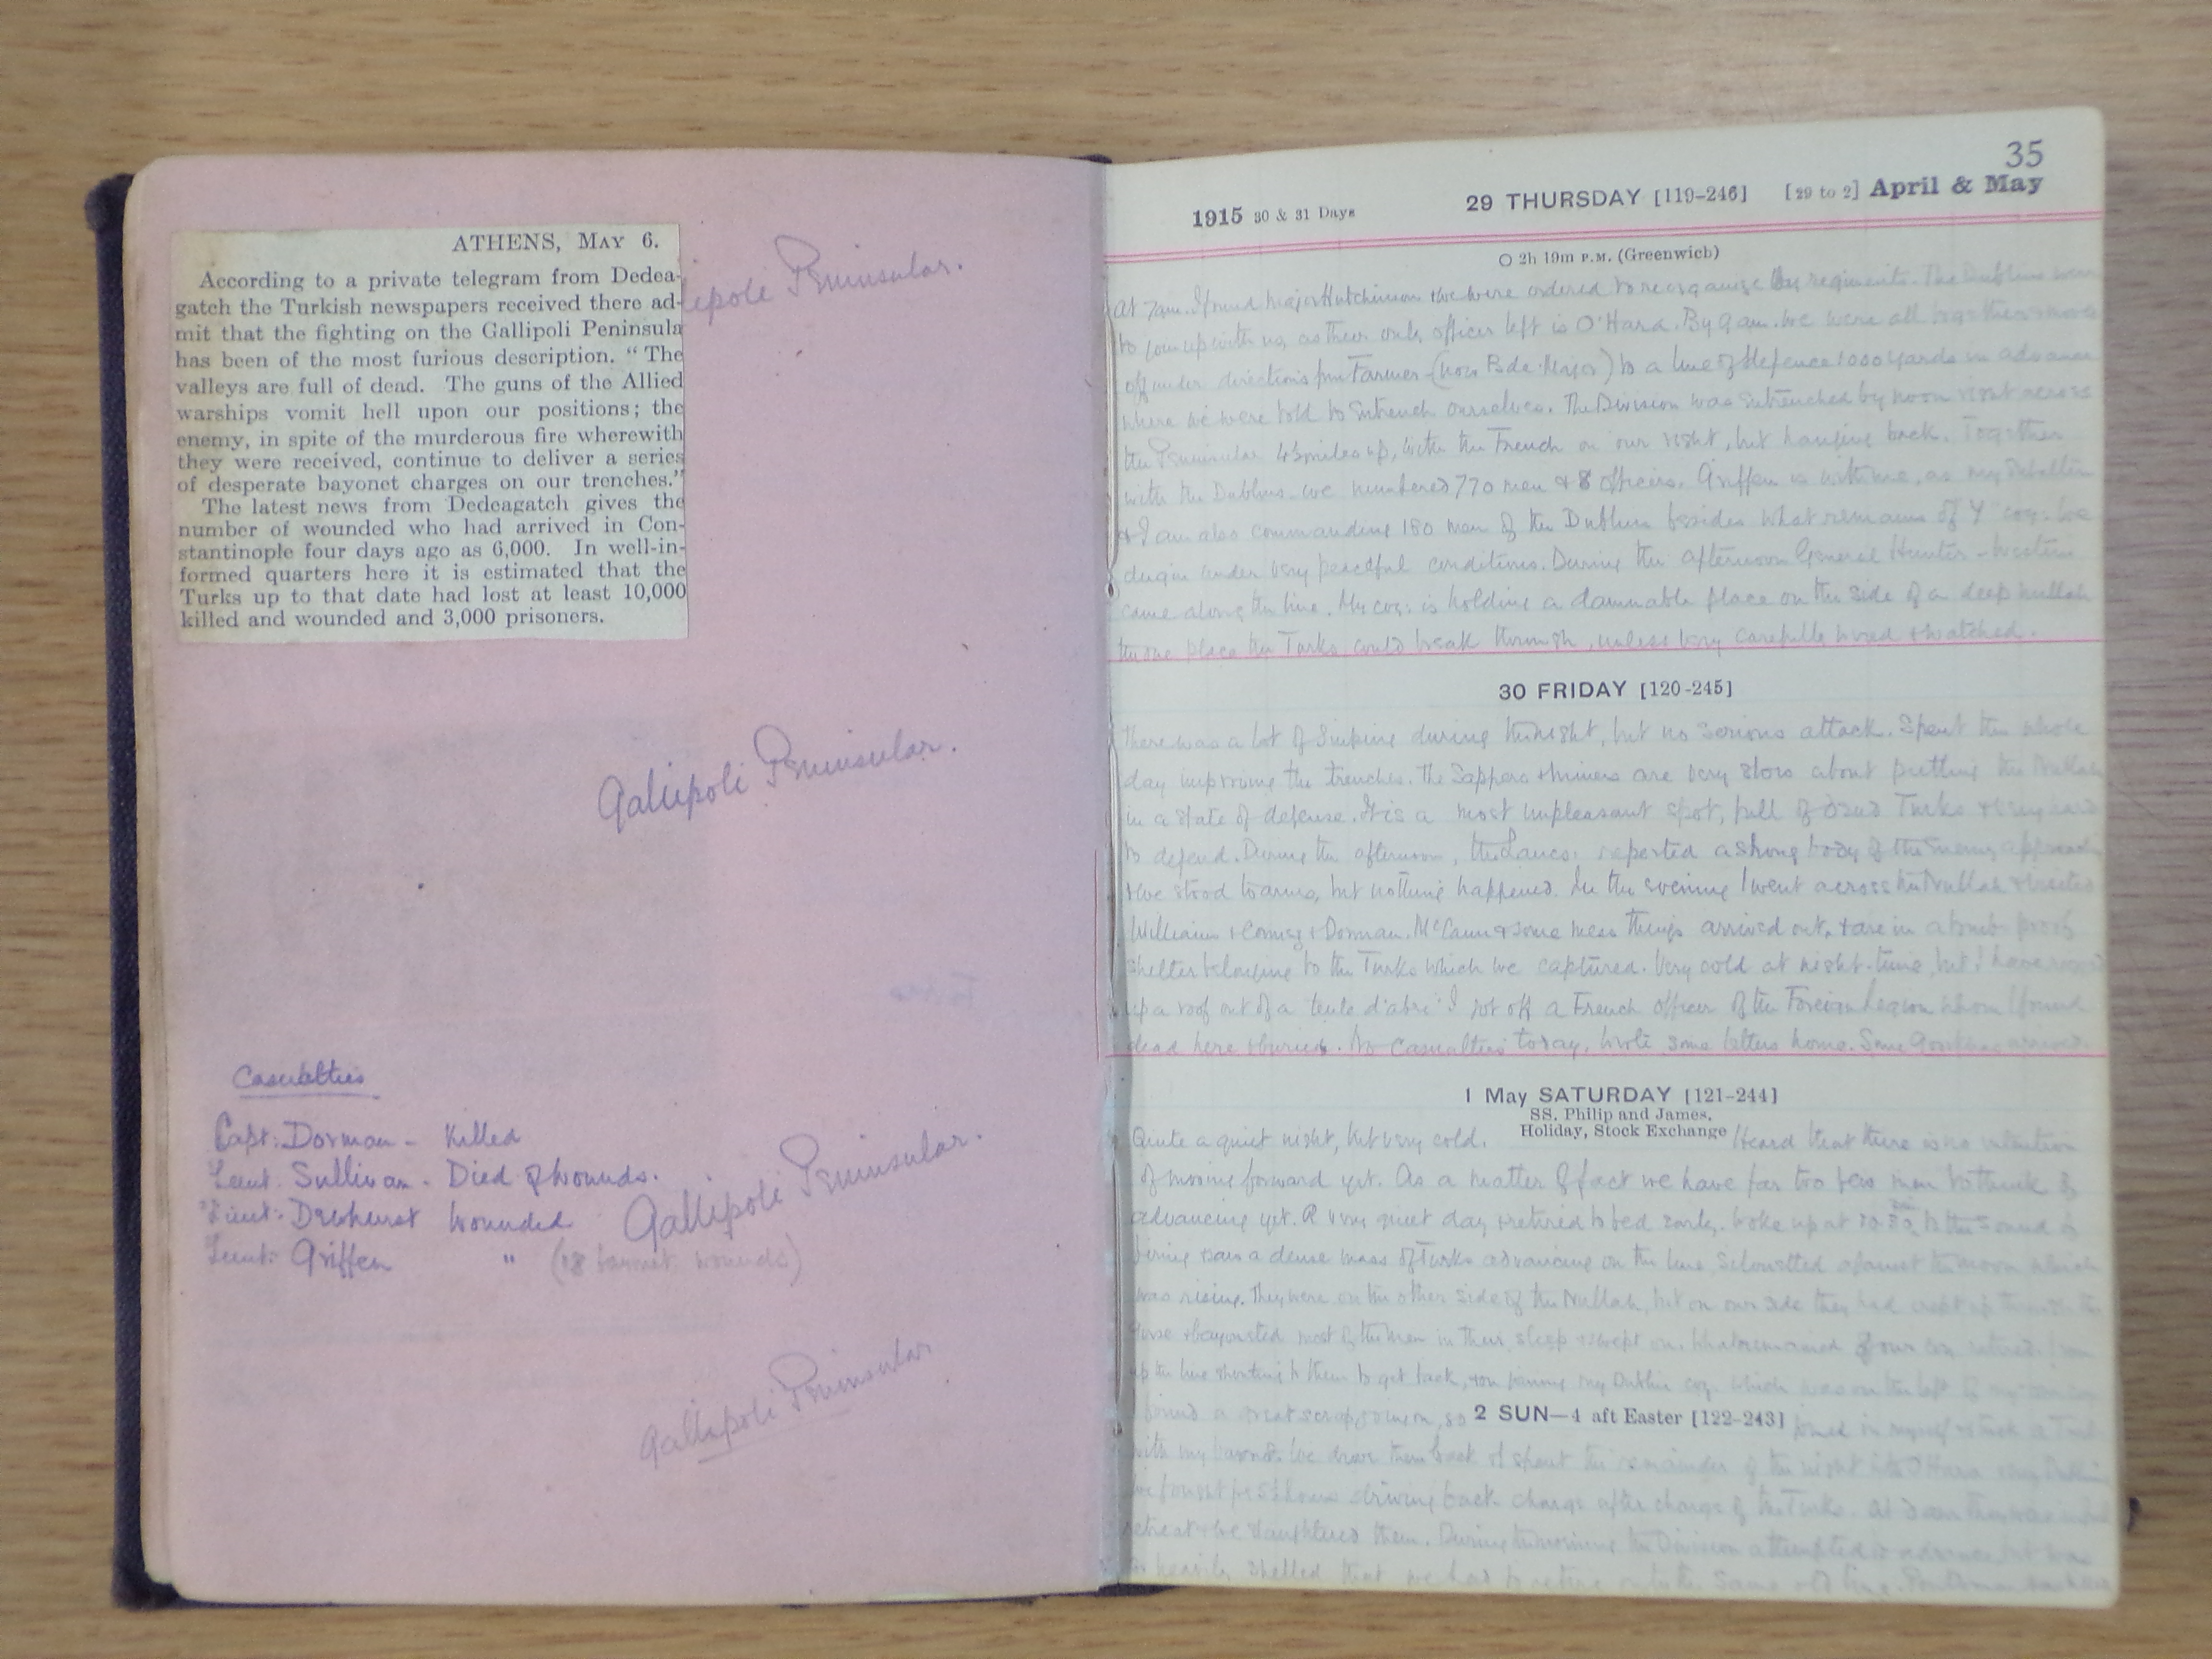 ATHENS, MAY 6.
According to a private telegram from Dedea-
gatch the Turkish newspapers received there ad-
mit that the fighting on the Gallipoli Peninsula
has been of the most furious description. “ The
valleys are full of dead. The guns of the Allied
warships vomit hell upon our positions; the
enemy, in spite of the murderous fire wherewith
they were received, continue to deliver a series
of desperate bayonet charges on our trenches.”
The latest news from Dedeagatch gives the
number of wounded who had arrived in Con-
stantinople four days ago as 6,000. In well-in-
formed quarters here it is estimated that the
Turks up to that date had lost at least 10,000
killed and wounded and 3,000 prisoners.
lipole Peninsular.
Gallipoli Peninsular.
Casualties
Capt: Dorman - Killed
Lieut. Sullivan - Died of wounds.
Lieut: Dewhurst Wounded
Gallipoli Peninsular.
Lieut: Griffen " (18 bayonet wounds)
Gallipoli Peninsular
35
1915 30 & 31 Days 29 THURSDAY [119-246] [29 to 2] April & May
O 2h 19m P.M. (Greenwich)
At 7am. I found Major Hutchinson & we were ordered to reorganise by regiments. The Dublins were
to join up with us, as their only officer left is O'Hara. By 9 am. we were all together & move
off under directions from Farmer - (now Bde. Major) to a line of defence 1000 yards in advance
where we were told to entrench ourselves. The Division was entrenched by noon right across
the Peninsular 4½ miles up, with the French on our right, but hanging back. Together
with the Dublins we numbered 770 men & 8 officers. Griffen is with me, as my
& I am also commanding 180 men of the Dublins besides what remains of Y coy. We
dug in under very peaceful conditions. During the afternoon General Hunter-Weston
came along the line. My coy: is holding a damnable place on the side of a deep nullah
the one place the Turks could break through, unless very carefully wired & watched.
30 FRIDAY [120-245]
There was a lot of sniping during the night, but no serious attack. Spent the whole
day improving the trenches. The Sappers & miners are very slow about putting the Nullah
in a state of defense. It is a most unpleasant spot, full of dead Turks & very hard
to defend. During the afternoon, the Lancs: reported a strong body of the enemy approach
& we stood to arms, but nothing happened. In the evening I went across the Nullah & visited
Williams & & Dorman. McCann & some mess things arrived out, & are in a bomb proof
shelter belonging to the Turks which we captured. Very cold at night-time, but I have rigged
up a roof out of a 'tente d'abri' I got off a French officer of the Foreign Legion whom I found
dead here & buried. No casualties today. Wrote some letters home. Some Goorkhas arrived.
1 May SATURDAY [121-244]
SS. Philip and James,
Holiday, Stock Exchange
Quite a quiet night, but very cold. Heard that there is no intention
of moving forward yet. As a matter of fact we have far too few men to think of
advancing yet. A very quiet day, & retired to bed early. Woke up at 10.30, to the sound of
firing & saw a dense mass of Turks advancing on the line, silouetted against the moon which
was rising. They were on the other side of the Nullah, but on our side they had crept up through the
gorse & bayonetted most of the men in their sleep & swept on. What remained of our coy retired. I ran
up the line shouting to them to get back, & on joining my Dublin coy. which was on the left of my own coy
I found a great scrap going on, so joined in myself & stuck a Turk
2 SUN—4 aft Easter [122-243]
with my bayonet. We drove them back & I spent the remainder of the night with O'Hara & my Dublins
We fought for 5 hours driving back charge after charge of the Turks. At dawn they were in full
retreat & we slaughtered them. During the morning the Division attempted to advance, but was
so heavily shelled that we had to retire onto the same old line. Poor Dorman